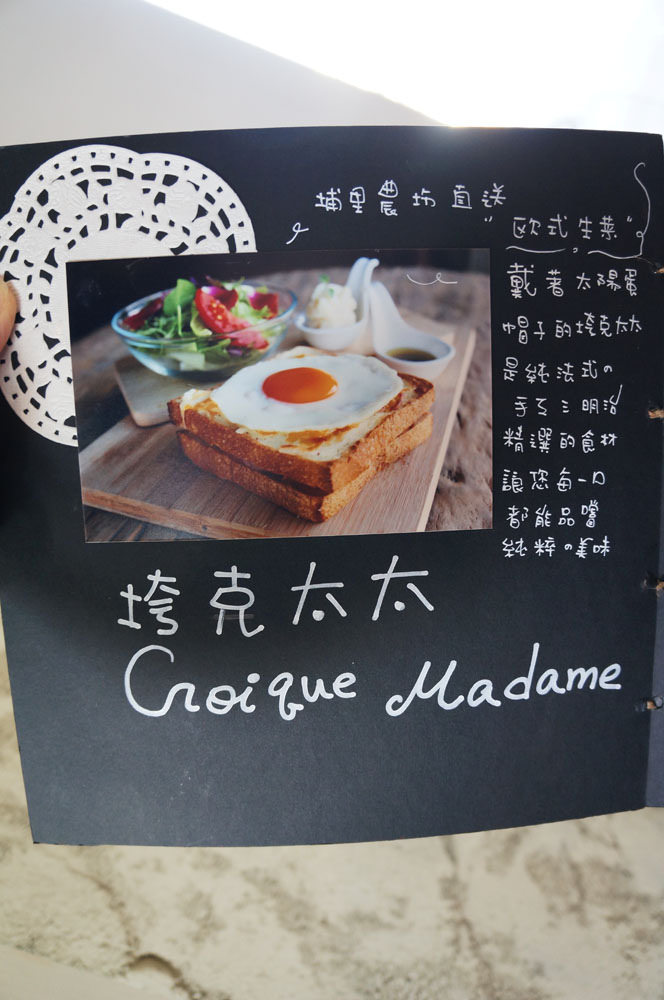 埔里農坊直送
"欧式生菜"
戴著太陽蛋
帽子的垮克太太
是純法式の
手工三明治
精選的食材
讓您每一口
都能品嚐
純粹の美味
垮克太太
Croique Madame